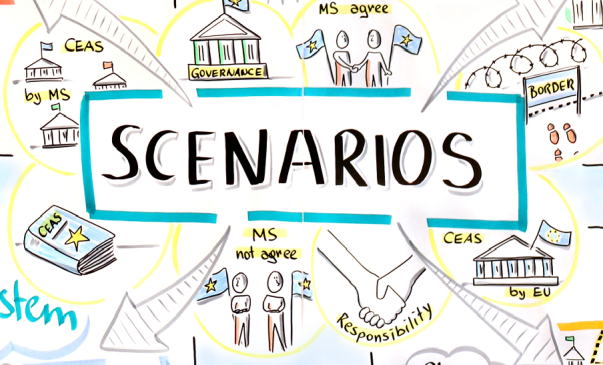 MS agree
CEAS
by MS
GOVERNANCE
BORDER
SCENARIOS
CEAS
MS
not agree
CEAS
by EU
Responsibility
stem